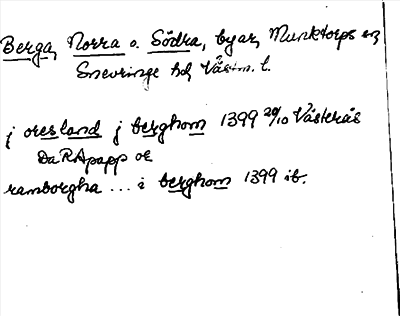 Berga, Norra o. Södra, byar, Munktorps sn
Snevringe hd, Västm. l.
j oresland j berghom 1399 20/10 Västerås
DaRApapp or
ramborgha ... i berghom 1399 ib.